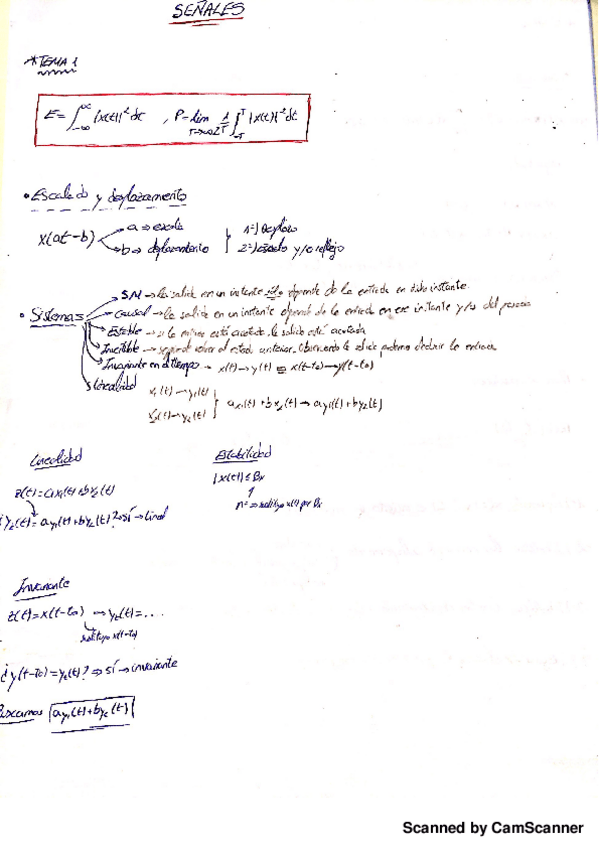 SEÑALES
* TEMA 1
E = ∫_{-∞}^{∞} |x(t)|² dt , P = lim_{T→∞} 1/2T ∫_{-T}^{T} |x(t)|² dt
• Escalado y desplazamiento
x(at-b) a → escala
b → desplazamiento
1º) Desplazo
2º) escalo y/o reflejo
• Sistemas
SM → la salida en un instante sólo depende de la entrada en dicho instante.
Causal → la salida en un instante depende de la entrada en ese instante y/o del pasado
Estable → si la entrada está acotada, la salida está acotada
Invertible → volver al estado anterior. Observando la salida podemos deducir la entrada
Invariante en el tiempo → x(t) → y(t) ⇒ x(t-t₀) → y(t-t₀)
Linealidad x₁(t) → y₁(t)
x₂(t) → y₂(t)
ax₁(t) + bx₂(t) → ay₁(t) + by₂(t)
Linealidad
z(t) = ax₁(t) + bx₂(t)
¿yz(t) = ay₁(t) + by₂(t)? → sí → Lineal
Estabilidad
|x(t)| ≤ Bx
sustituyo x(t) por Bx
Invariante
z(t) = x(t-t₀) → yz(t) = ...
sustituyo x(t-t₀)
¿y(t-t₀) = yz(t)? ⇒ sí → invariante
Buscamos ay₁(t) + by₂(t)
Scanned by CamScanner